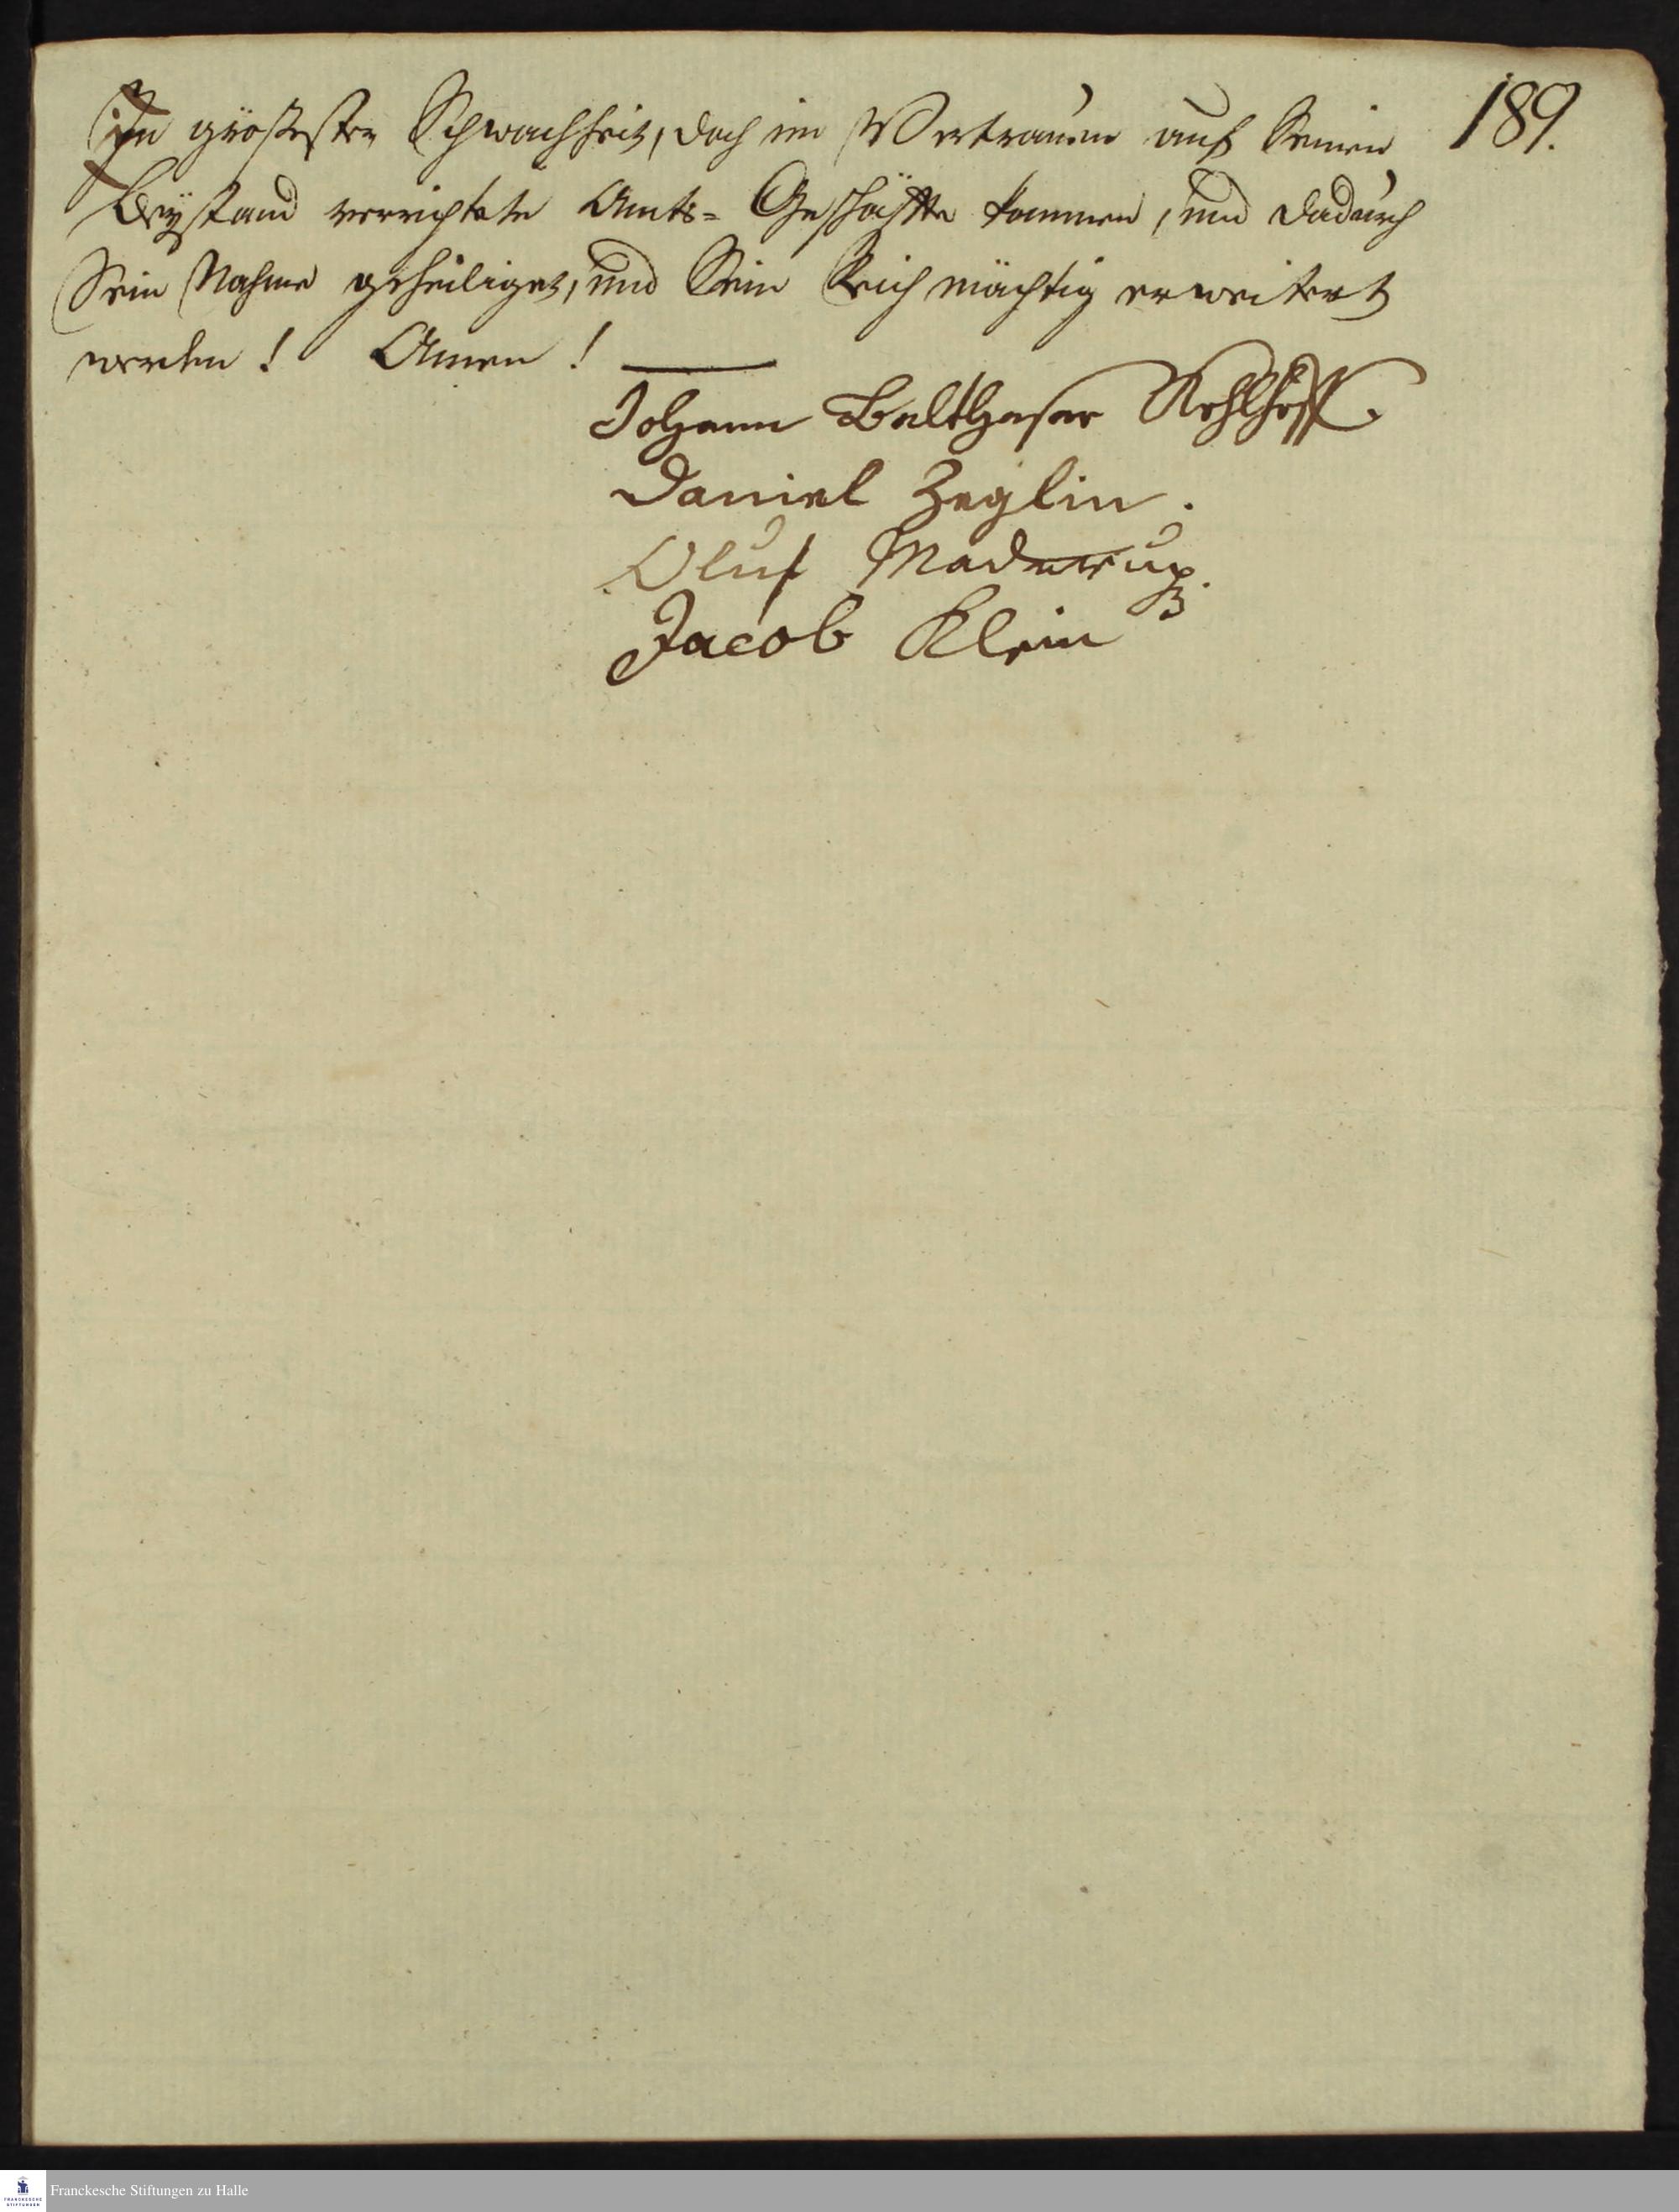 189.
in größester Schwachheit, doch im Vertrauen auf Seinen
Beystand verrichtete Amts= Geschäffte kommen, und dadurch
Sein Nahme geheiliget, und Sein Reich mächtig erweitert
werden! Amen!
Johann Balthasar Kohlhoff.
Daniel Zeglin.
Oluf Maderup.
Jacob Klein
FRANCKESCHE STIFTUNGEN
Franckesche Stiftungen zu Halle